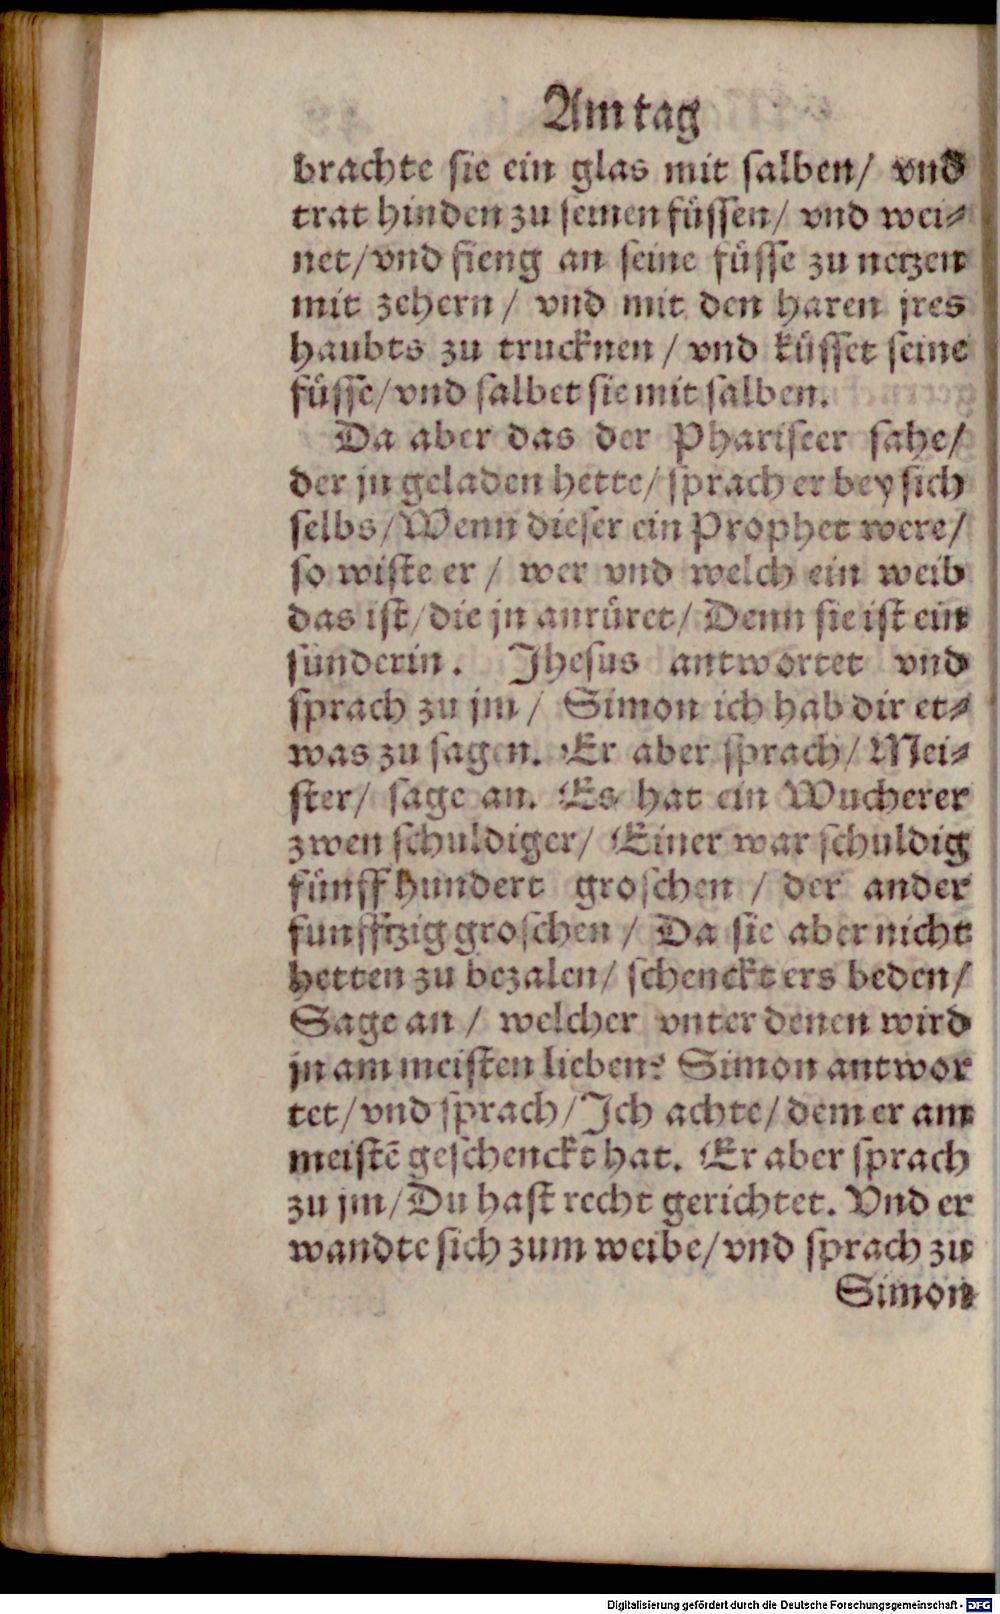 Am tag
brachte sie ein glas mit salben/ vnd
trat hinden zu seinen füssen/ vnd wei⸗
net/ vnd fieng an seine füsse zu netzen
mit zehern/ vnd mit den haren jres
haubts zu trucknen/ vnd küsset seine
füsse/ vnd salbet sie mit salben.
Da aber das der Phariseer sahe/
der jn geladen hette/ sprach er bey sich
selbs/ Wenn dieser ein Prophet were/
so wiste er/ wer vnd welch ein weib
das ist/ die jn anrüret/ Denn sie ist ein
sünderin. Jhesus antwortet vnd
sprach zu jm/ Simon ich hab dir et⸗
was zu sagen. Er aber sprach/ Mei⸗
ster/ sage an. Es hat ein Wucherer
zwen schuldiger/ Einer war schuldig
fünff hundert groschen/ der ander
funfftzig groschen/ Da sie aber nicht
hetten zu bezalen/ schenckt ers beden/
Sage an/ welcher vnter denen wird
jn am meisten lieben? Simon antwor
tet/ vnd sprach/ Ich achte/ dem er am
meistẽ geschenckt hat. Er aber sprach
zu jm/ Du hast recht gerichtet. Vnd er
wandte sich zum weibe/ vnd sprach zu
Simon
Digitalisierung gefördert durch die Deutsche Forschungsgemeinschaft - DFG